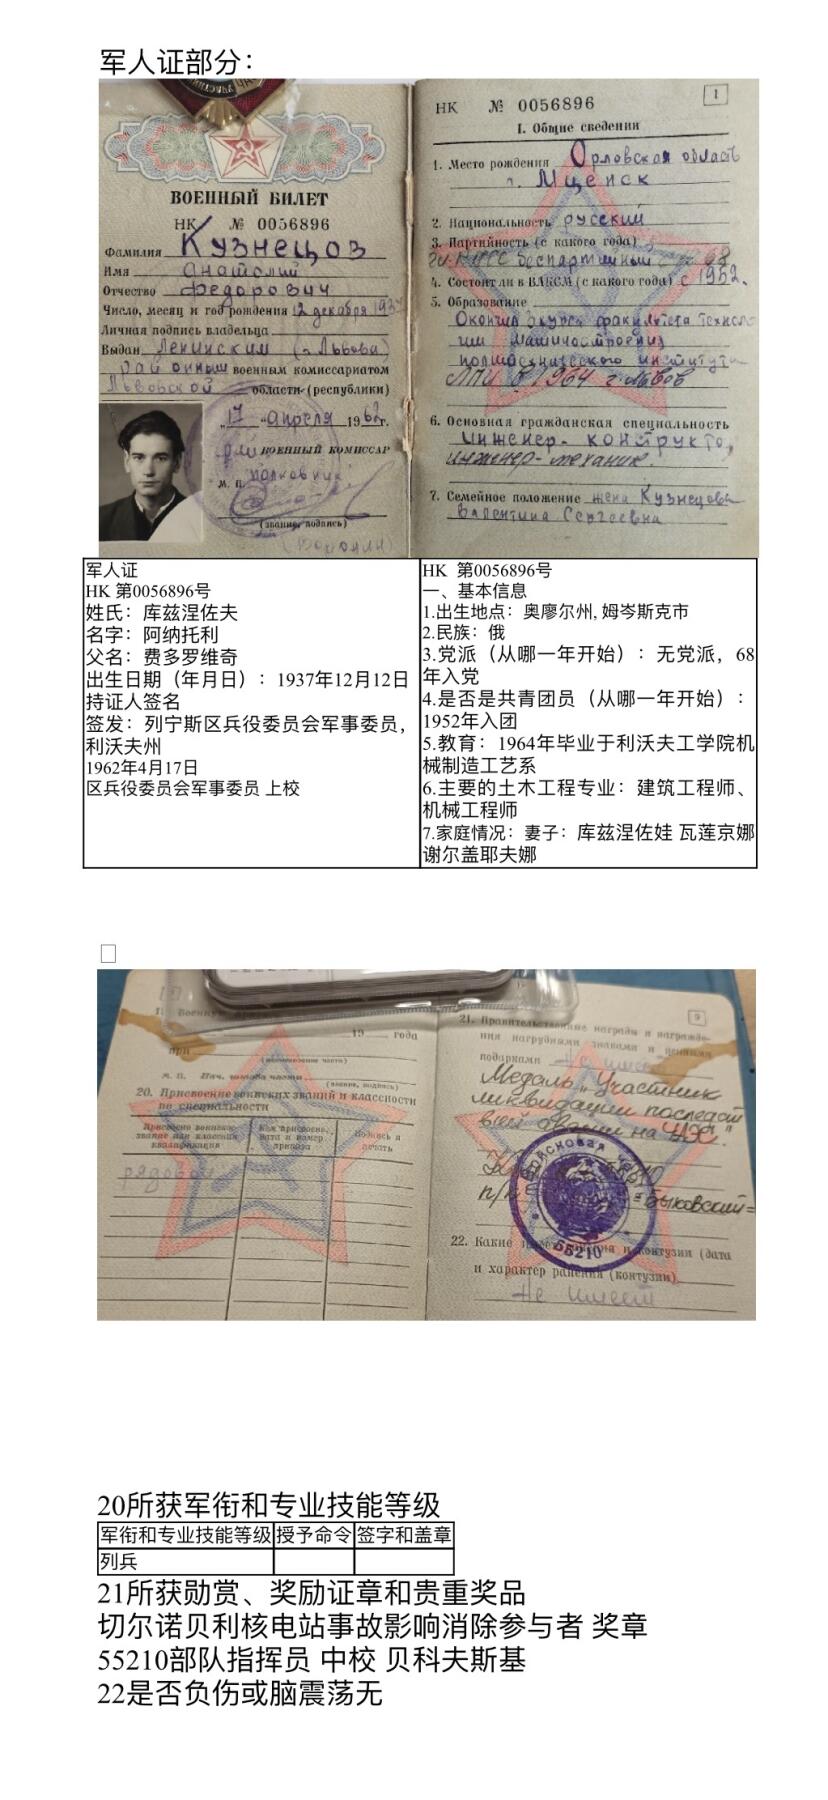 军人证部分：
НК № 0056896
1
I. Общие сведения
1. Место рождения Орловская область
г. Мценск
2. Национальность русский
3. Партийность (с какого года)
беспартийный 68
4. Состоит ли в ВЛКСМ (с какого года) с 1952.
5. Образование
Окончил 3 курса факультета техноло-
гии машиностроения
политехнического института
ЛПИ в 1964 г. Львов
6. Основная гражданская специальность
инженер-конструкто
инженер-механик.
7. Семейное положение жена Кузнецова
Валентина Сергеевна
ВОЕННЫЙ БИЛЕТ
НК № 0056896
Фамилия Кузнецов
Имя Анатолий
Отчество Федорович
Число, месяц и год рождения 12 декабря 1937
Личная подпись владельца
Выдан Ленинским (г. Львова)
районным военным комиссариатом
Львовской области (республики)
„17" апреля 1962 г.
ВОЕННЫЙ КОМИССАР
полковник
М. П.
(звание, подпись)
军人证
HK 第0056896号
姓氏：库兹涅佐夫
名字：阿纳托利
父名：费多罗维奇
出生日期（年月日）：1937年12月12日
持证人签名
签发：列宁斯区兵役委员会军事委员,
利沃夫州
1962年4月17日
区兵役委员会军事委员 上校
HK 第0056896号
一、基本信息
1.出生地点：奥廖尔州, 姆岑斯克市
2.民族：俄
3.党派（从哪一年开始）：无党派，68
年入党
4.是否是共青团员（从哪一年开始）：
1952年入团
5.教育：1964年毕业于利沃夫工学院机
械制造工艺系
6.主要的土木工程专业：建筑工程师、
机械工程师
7.家庭情况：妻子：库兹涅佐娃 瓦莲京娜
谢尔盖耶夫娜
19 года
при
(наименование части)
М. П. Нач. штаба части
(звание, подпись)
20. Присвоение воинских званий и классности
по специальности
Присвоено воинское звание или классная квалификация
Кем присвоено, дата и номер приказа
Подпись и печать
рядовой
9
21. Правительственные награды и награжде-
ния нагрудными знаками и ценными
подарками Не имеет
Медаль „Участник
ликвидации последст
вий аварии на ЧАЭС."
п/п
=Быковский=
Войсковая часть
55210
22. Какие имеет ранения и контузии (дата
и характер ранения (контузии)
Не имеет
20所获军衔和专业技能等级
军衔和专业技能等级 授予命令 签字和盖章
列兵
21所获勋赏、奖励证章和贵重奖品
切尔诺贝利核电站事故影响消除参与者 奖章
55210部队指挥员 中校 贝科夫斯基
22是否负伤或脑震荡无